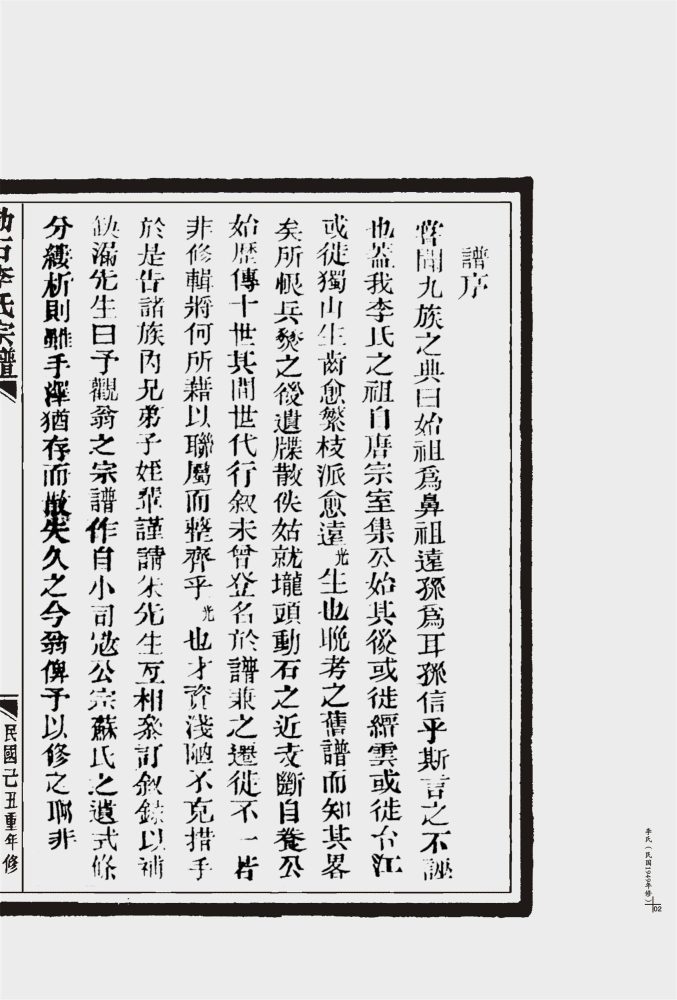 譜序
嘗聞九族之典曰始祖爲鼻祖遠孫爲耳孫信乎斯言之不誣
也蓋我李氏之祖自唐宗室集公始其後或徙縉雲或徙台江
或徙獨山生齒愈繁枝派愈遠光生也晚考之舊譜而知其畧
矣所恨兵燹之後遺牒散佚姑就壠頭動石之近支斷自養公
始歷傳十世其間世代行叙未曾登名於譜兼之遷徙不一若
非修輯將何所藉以聯屬而整齊乎光也才資淺陋不克措手
於是告諸族內兄弟子姪輩謹請朱先生互相叅訂叙錄以補
缺漏先生曰予觀翁之宗譜作自小司寇公宗蘇氏之遺式條
分縷析則雖手澤猶存而散失久之今翁俾予以修之啊非
石李氏宗譜
民國己丑年重修
李氏（民国1949年修）
02